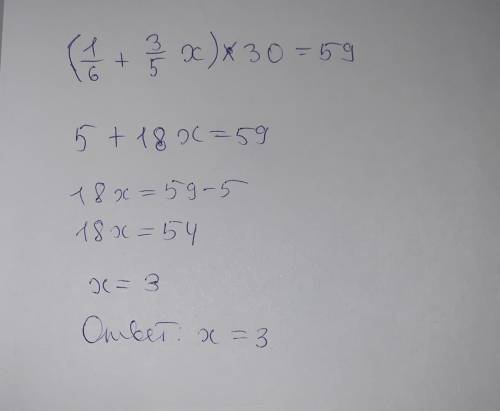 (1/6 + 3/5 x) × 30 = 59
5 + 18x = 59
18x = 59 - 5
18x = 54
x = 3
Ответ: x = 3